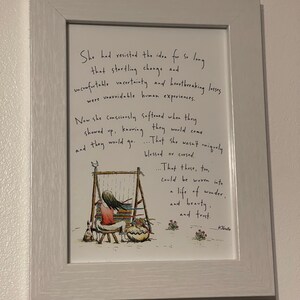 She had resisted the idea for so long
that startling change and
uncomfortable uncertainty and heartbreaking losses
were unavoidable human experiences
Now she consciously softened when they
showed up, knowing they would come
and they would go. ...That she wasn't uniquely
blessed or cursed
...That these, too,
could be woven into
a life of wonder,
and beauty
and trust